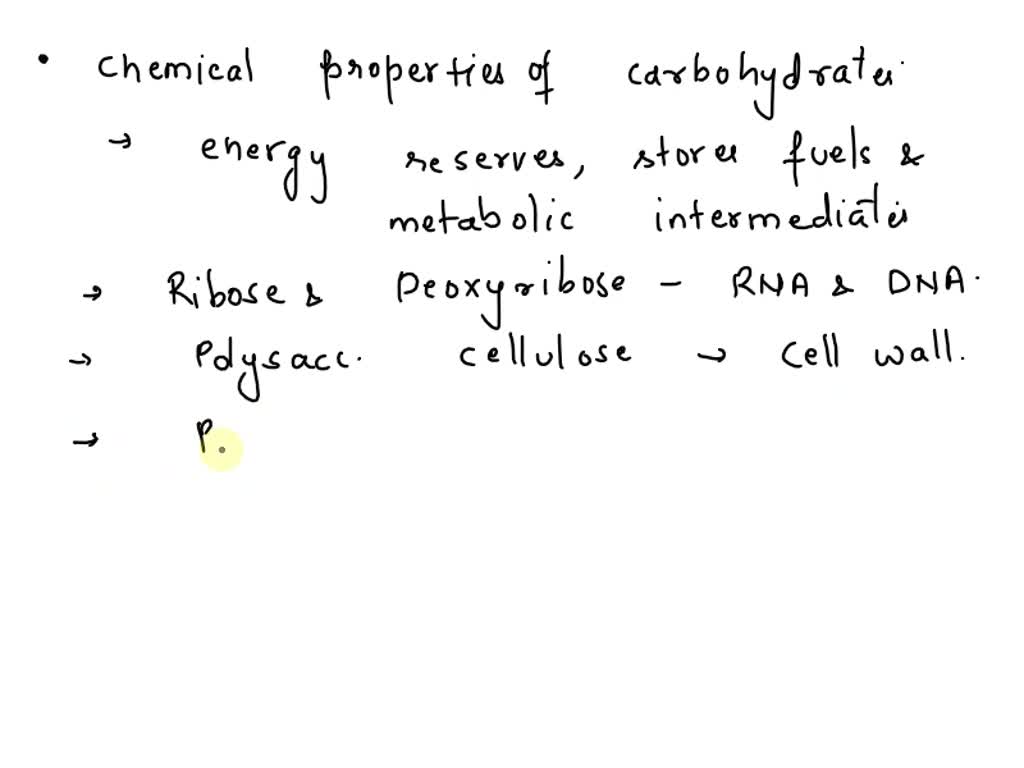 • Chemical properties of carbohydrates.
→ energy reserves, stores fuels &
metabolic intermediates
→ Ribose & Deoxyribose - RNA & DNA.
→ Polysacc. cellulose → cell wall.
→ P.